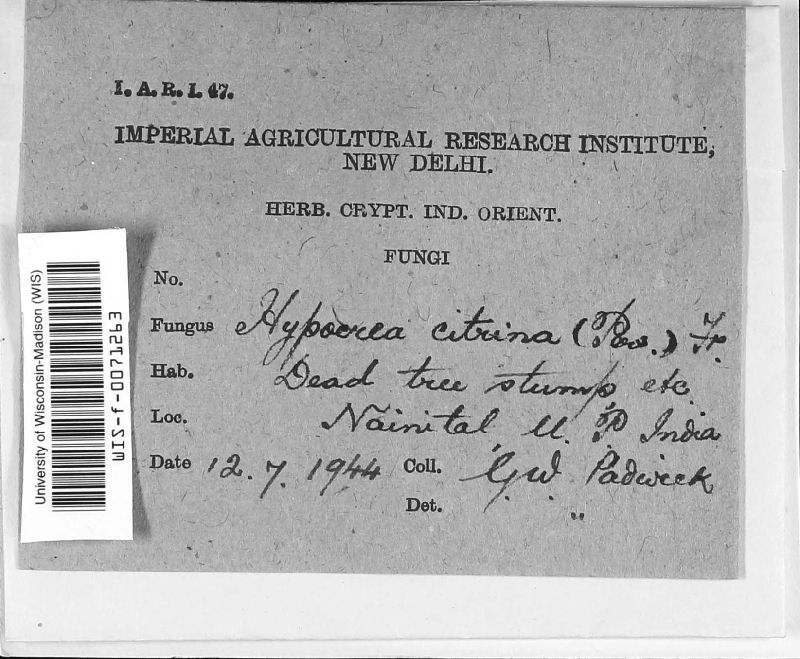 I. A. R. I. 47.
IMPERIAL AGRICULTURAL RESEARCH INSTITUTE,
NEW DELHI.
HERB. CRYPT. IND. ORIENT.
FUNGI
No.
Fungus Hypocrea citrina (Pers.) Fr.
Hab. Dead tree stump, etc.
Loc. Nainital, U. P. India
Date 12.7.1944 Coll. G W Padwick
Det. "
University of Wisconsin-Madison (WIS)
WIS-f-0071263